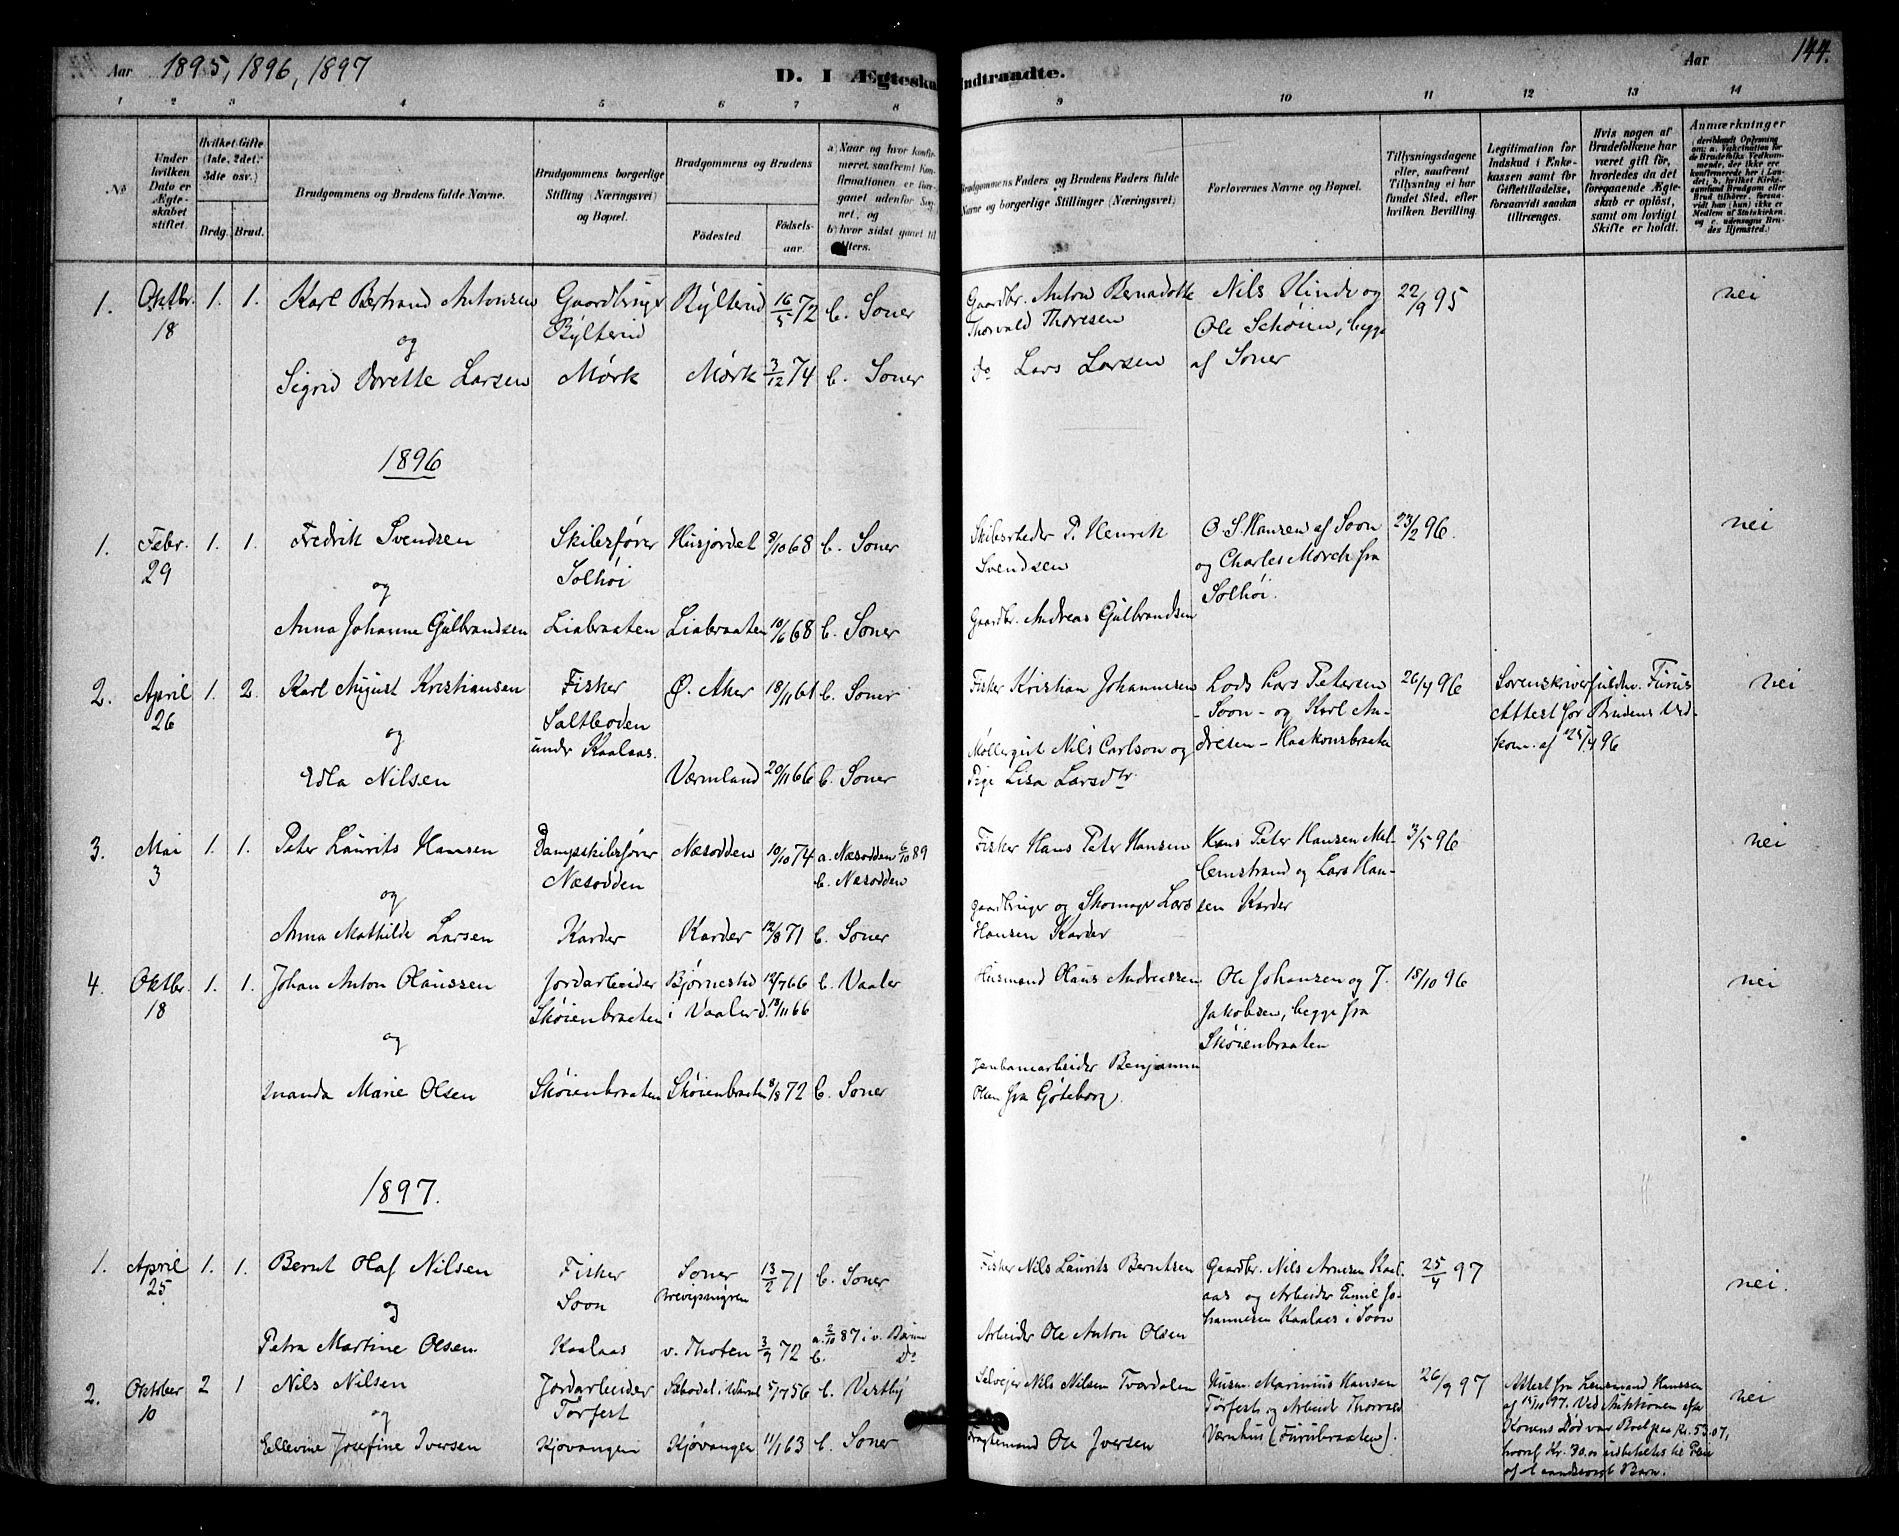 Aar 1895, 1896, 1897
D. I Ægteska
Indtraadte.
Aar
144.
1 2 3 4 5 6 7 8 9 10 11 12 13 14
No
Under hvilken Dato er Ægteskabet stiftet.
Hvilket Gifte (1ste, 2det, 3die osv.)
Brdg. Brud.
Brudgommens og Brudens fulde Navne.
Brudgommens borgerlige Stilling (Næringsvei) og Bopæl.
Brudgommens og Brudens
Fødested.
Fødselsaar.
a) Naar og hvor konfirmeret, saafremt Konfirmationen er foregaaet udenfor Sognet, og
b) hvor sidst gaaet til Alters.
Brudgommens Faders og Brudens Faders fulde Navne og borgerlige Stillinger (Næringsvei)
Forlovernes Navne og Bopæl.
Tillysningsdagene eller, saafremt Tillysning ei har fundet Sted, efter hvilken Bevilling.
Legitimation for Indskud i Enkekassen samt for Giftetilladelse, forsaavidt saadan tiltrænges.
Hvis nogen af Brudefolkene har været gift før, hvorledes da det foregaaende Ægteskab er opløst, samt om lovligt Skifte er holdt.
Anmærkninger
1. Oktbr. 18 1. 1. Karl Bertrand Antonsen Gaardbruger Bylterud Bylterud 16/5 72 b. Soner Gaardbr. Anton Bernadotte Thorvald Thoresen Nils Hinde og Ole Schöien, begge af Soner 22/9 95 nei
og
Sigrid Dorette Larsen Mørk Mørk 3/12 74 b. Soner Do Lars Larsen
1896
1. Febr. 29 1. 1. Fredrik Svendsen Skibsfører Solhöi Husjordet 8/10 68 b. Soner Skibsrheder P. Henrik Svendsen O. S. Hansen af Soon og Charles Mørch fra Solhöi. 23/2 96. nei
og
Anna Johanne Gulbrandsen Liabraaten Liabraaten 10/6 68 b. Soner Gaardbr. Andreas Gulbrandsen
2. April 26 1. 2. Karl August Kristiansen Fisker Saltboden under Kaalaas. Ø. Aker 18/11 61 b. Soner Fisker Kristian Johannesen Lods Lars Petersen - Soon - og Karl Andresen - Haakonsbraaten 26/4 96 Sorenskriverfuldm. Furus Attest for Brudens Vedkom. af 25/4 96 nei
og
Edla Nilsen Værmland 20/11 66 b. Soner Møllergut Nils Carlson og Pige Lisa Larsdtr.
3. Mai 3 1. 1. Peter Laurits Hansen Dampskibsfører Næsodden Næsodden 10/10 74 a. Næsodden 6/10 89 b. Næsodden Fisker Hans Peter Hansen Hans Peter Hansen Mellemstrand og Lars Hansen Karder 3/5 96 nei
og
Anna Mathilde Larsen Karder Karder 12/8 71 b. Soner Gaardbruger og Skomager Lars Hansen Karder
4. Oktbr. 18 1. 1. Johan Anton Olaussen Jordarbeider Skøienbraaten Bjørnestad i Vaaler 12/7 66 d. 18/11 66 b. Vaaler Husmand Olaus Andreassen Ole Johansen og J. Jakobsen, begge fra Skøienbraaten 18/10 96 nei
og
Inanda Marie Olsen Skøienbraaten Skøienbraaten 8/8 72 b. Soner Jernbanarbeider Benjamin Olsen fra Göteborg.
1897.
1. April 25 1. 1. Bernt Olaf Nilsen Fisker Soon Soner 13/2 71 b. Soner Fisker Nils Laurits Berntsen Gaardbr. Nils Arnesen Kaalaas og Arbeider Emil Johannesen Kaalaas i Soon 25/4 97 nei.
og
Petra Martine Olsen. Kaalaas v. Thoten 3/9 72 a. 2/10 87 i v. Bærum b. Do Arbeider Ole Anton Olsen
2. Oktober 10 2 1 Nils Nilsen Jordarbeider Torfert 5/7 56 b. Vestby Selveier Nils Nilsen Tvardalen Husm. Marinius Hansen Torfert og Arbeid. Thorvald Værnhus (Furubraaten). 26/9 97 Attest fra Lensmand Hanssen af 15/10 97. Ved Auktionen efter Konens Død var Boet paa Kr. 53.07, hvoraf Kr. 30.00 udbetaltes til Pleie af et aandssvagt Barn. nei
og
Ellevine Josefine Iversen Kjøvangen Kjøvangen 11/1 63 b. Soner Fragtemand Ole Iversen